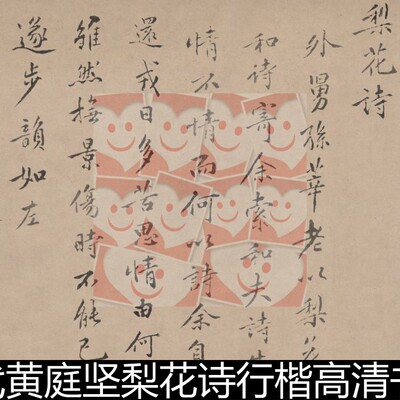 梨花詩
外舅孫莘老以梨花
和詩寄余索和夫詩生
情不情而何以詩余自
還戎日多苦思情由何
雖然撫景傷時不能已
遂步韻如左
黄庭坚梨花诗行楷高清